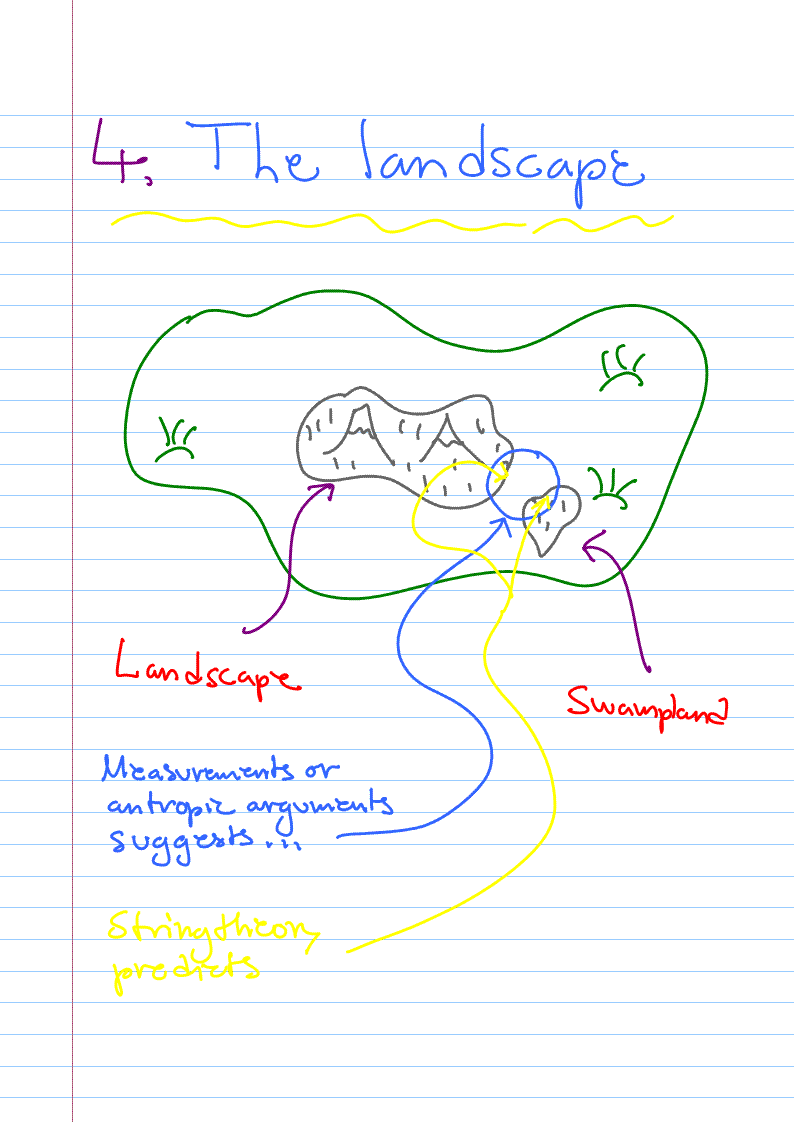 4. The landscape
Landscape
Swampland
Measurements or
antropic arguments
suggests...
String theory
predicts